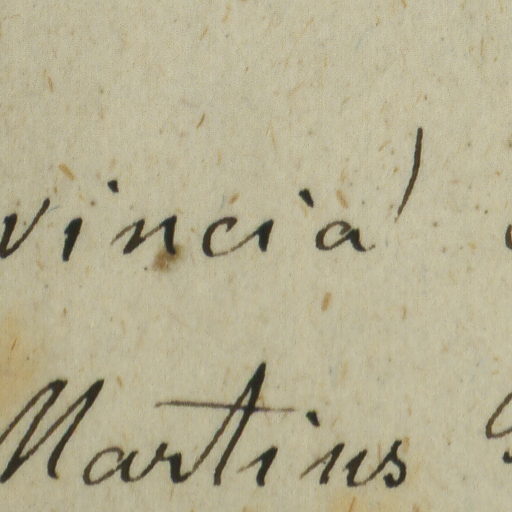 vincia!
Martius